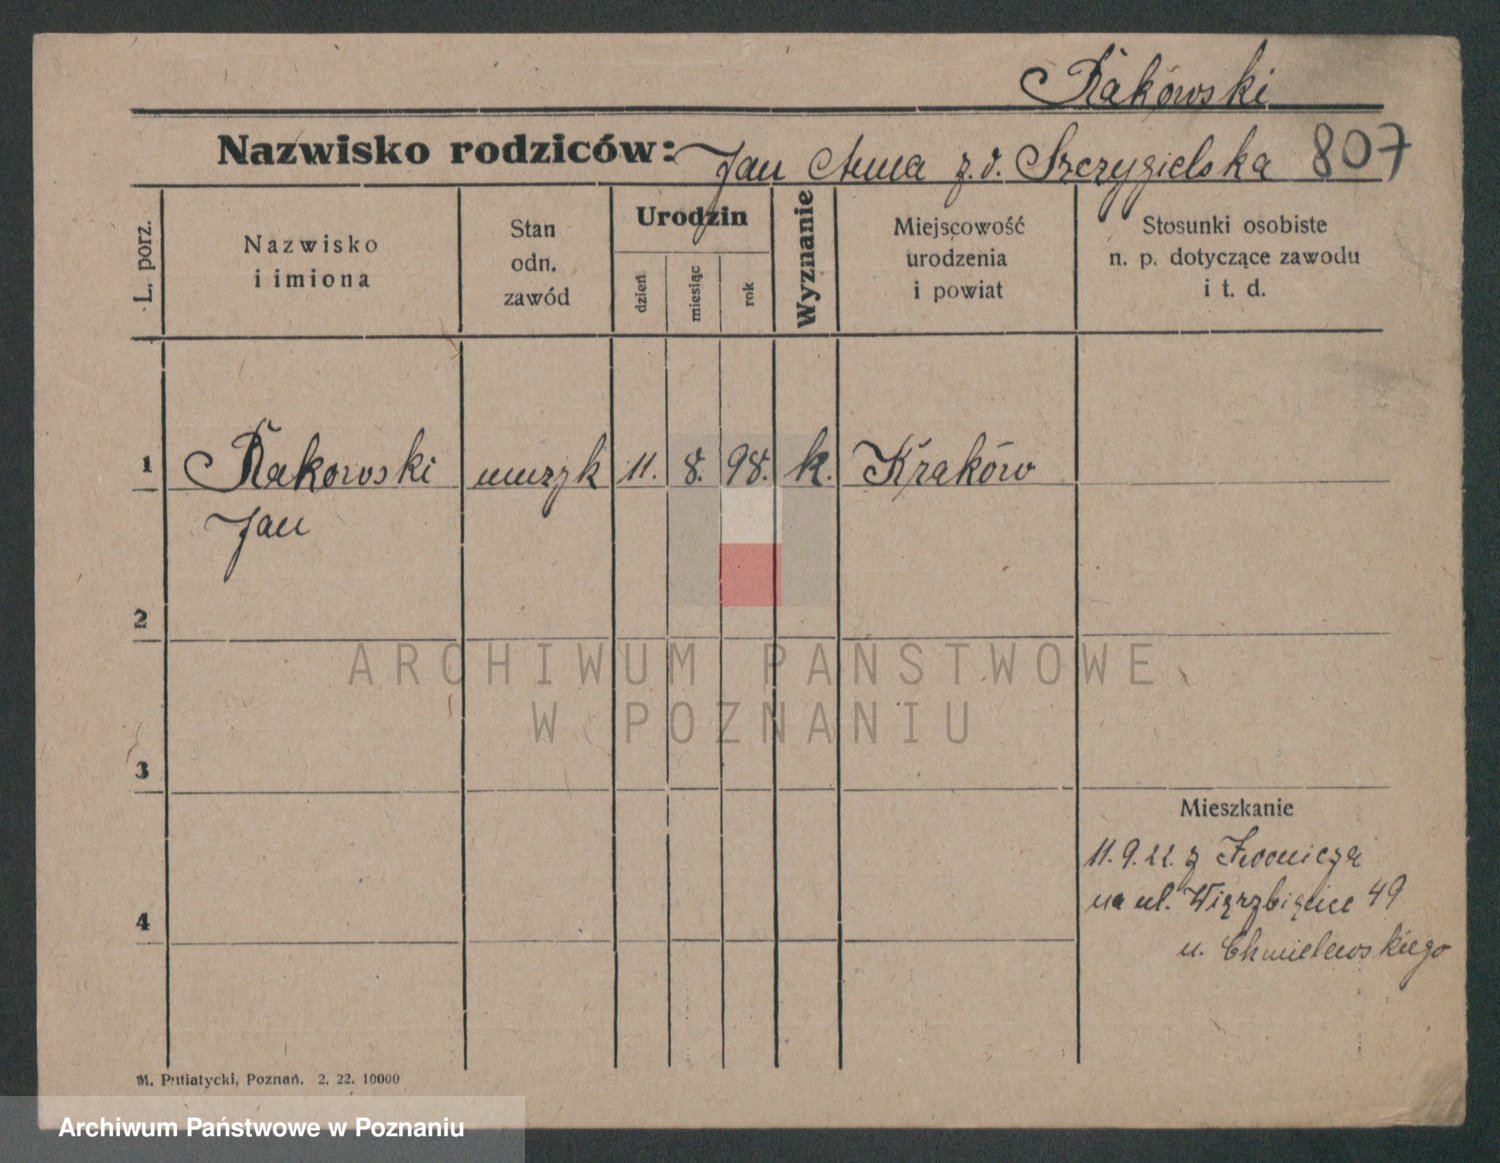 Rakowski
Nazwisko rodziców: Jan Anna z.d. Szczygielska 807
L. porz.
Nazwisko
i imiona
Stan
odn.
zawód
Urodzin
dzień
miesiąc
rok
Wyznanie
Miejscowość
urodzenia
i powiat
Stosunki osobiste
n. p. dotyczące zawodu
i t. d.
1 Rakowski muzyk 11. 8. 98. k. Kraków
Jan
2
ARCHIWUM PAŃSTWOWE
W POZNANIU
3
Mieszkanie
11.9.22. z
na ul. Wierzbięcice 49
4
u. Chmielewskiego
M. Putiatycki, Poznań. 2. 22. 10000
Archiwum Państwowe w Poznaniu